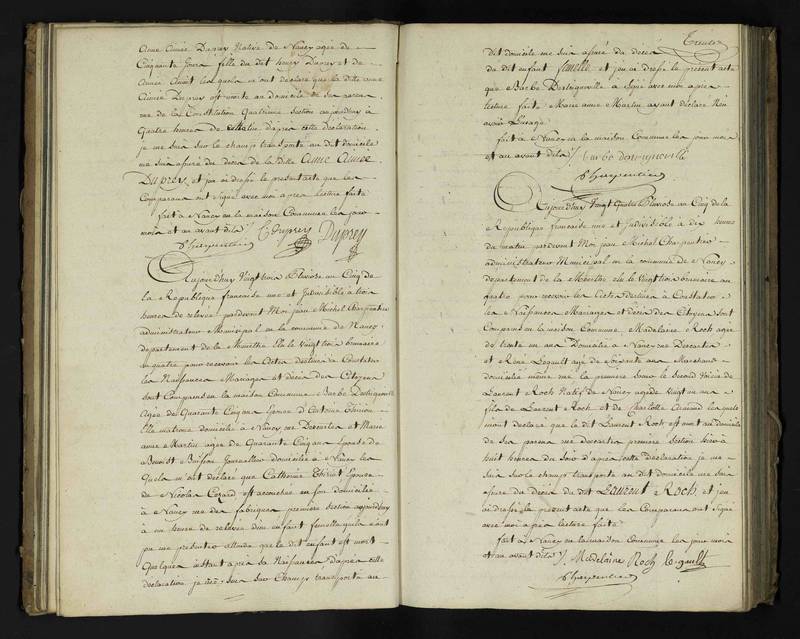 anne Aimée Duprey Native de Nancy agée de
Cinquante jours fille du dit henry Duprey et de
Aimée lesquels m'ont declaré que la ditte anne
Aimée Duprey est morte au domicile de ses parens
rue de la Constitution Quatrieme section aujourdhuy à
Quatre heures du matin dapres cette Declaration
je me suis sur le champ transporté au dit domicile
me suis assuré du deces de la ditte anne Aimée
Duprey, et j'en ai dressé le present acte que les
Comparans ont signé avec moi apres lecture faite
fait à Nancy en la maison Commune les jour
mois et an avant dits C Duprey Duprey
Charpentier
Aujourdhuy Vingt trois Pluviose an Cinq de
la Republique francaise une et Indivisible à trois
heures de relevée pardevant Moi jean Michel Charpentier
administrateur Municipal en la commune de Nancy
departement de la Meurthe élu le Vingt trois brumaire
an quatre pour recevoir les Actes destinés à Constater
les Naissances Mariages et décès des Citoyens
sont Comparus en la maison Commune Barbe
agée de Quarante Cinq ans Epouse d'Antoine
Elle matrone domiciliée à Nancy rue Descartes et Marie
anne Martin agée de Quarante Cinq ans Epouse de
Benoist Journalier domiciliée à Nancy les
quels m'ont déclaré que Catherine Thiriet Epouse
de Nicolas Cezard est accouchée en son domicile
à Nancy rue des fabriques premiere section aujourdhuy
à une heure de relevée d'un enfant femelle qu'elles n'ont
pu me presenter attendu que le dit enfant est mort
Quelques instant après sa Naissance d'apres cette
déclaration je me suis sur Champ transporté au
Trente
dit domicile me suis assuré du deces
du dit enfant femelle et j'en ai dressé le present acte
que Barbe a Signé avec moi apres
lecture faite Marie anne Martin ayant declaré N'en
avoir L'usage
fait à Nancy en la maison Commune les jour mois
et an avant dits /. barbe
Charpentier
Aujourdhuy Vingt Quatre Pluviose an Cinq de la
Republique francaise une et Indivisible à dix heures
du matin pardevant Moi jean Michel Charpentier
administrateur Municipal en la commune de Nancy
departement de la Meurthe élu le Vingt trois brumaire an
quatre pour recevoir les Actes destinés à Constater
les Naissances Mariages et décès des Citoyens sont
Comparus en la maison Commune Madelaine Roch agée
de trente un ans Domiciliée à Nancy rue Descartes
et René Legault agé de soixante ans Marchand
domicilié même rue la premiere soeur le second Voisin de
Laurent Roch Natif de Nancy agé de Vingt un ans
fils de Laurent Roch et de Charlotte lesquels
mont declaré que le dit Laurent Roch est mort au domicile
de ses parens rue Descartes premiere section hier à
huit heures du Soir d'après cette Declaration je me
suis sur le champ transporté au dit domicile me suis
assuré du deces du dit Laurent Roch, et j'en
ai dressé le present acte que les Comparans ont Signé
avec moi après lecture faite
fait à Nancy en la maison Commune les jour mois
et an avant dits /. Madelaine Roch legault
Charpentier